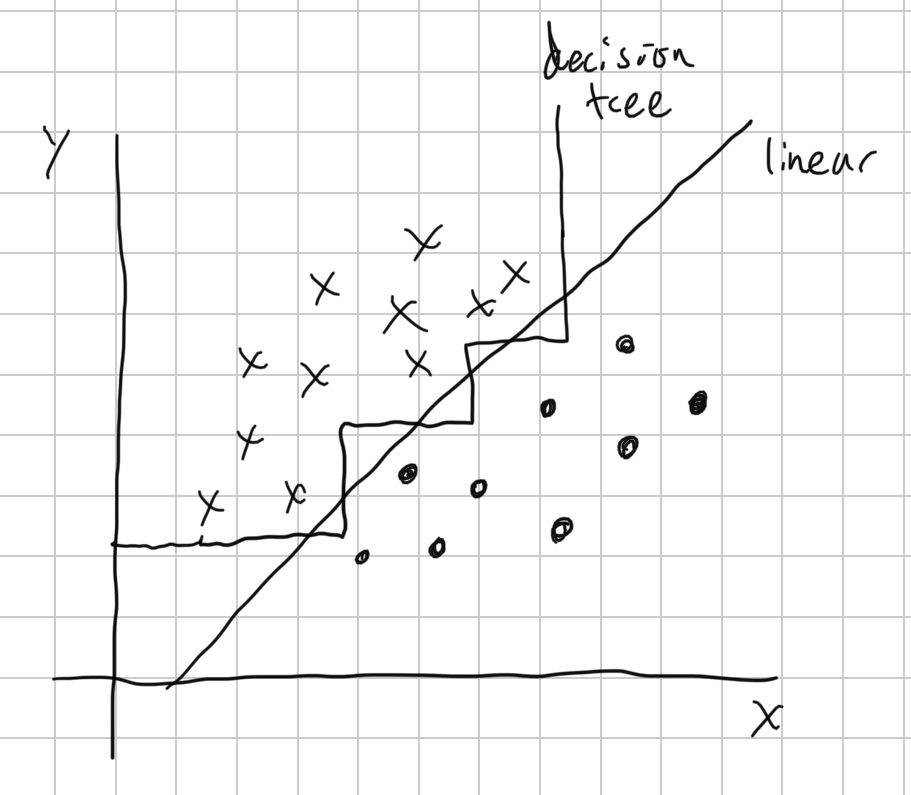 decision
tree
Y
linear
X